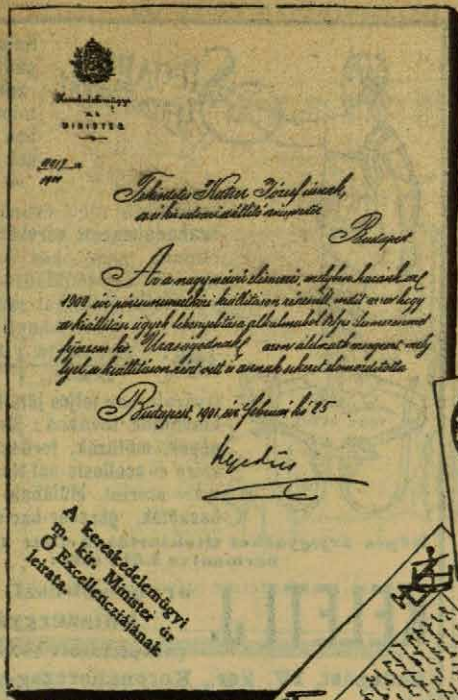 Kereskedelemügyi
m. k.
MINISTER
1901
Tekintetes Katser József úrnak,
Budapest
Az a nagymérvű elismerés, melyben hazánk az
1900 évi párisi nemzetközi kiállításon részesült, indít arra hogy
a kiállítási ügyek lebonyolítása alkalmából teljes elismerésemet
fejezzem ki Uraságodnak azon áldozatkészségeért mely
lyel a kiállításon részt vett és annak sikerét előmozdította
Budapest, 1901. évi február hó 25.
Hegedüs
A kereskedelemügyi
m. kir. Minister úr
Ő Excellencziájának
leirata.